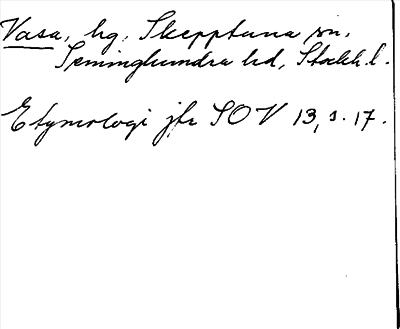 Vasa, hg, Skepptuna sn,
Seminghundra hd, Stockh. l.
Etymologi jfr SOV 13, s. 17.